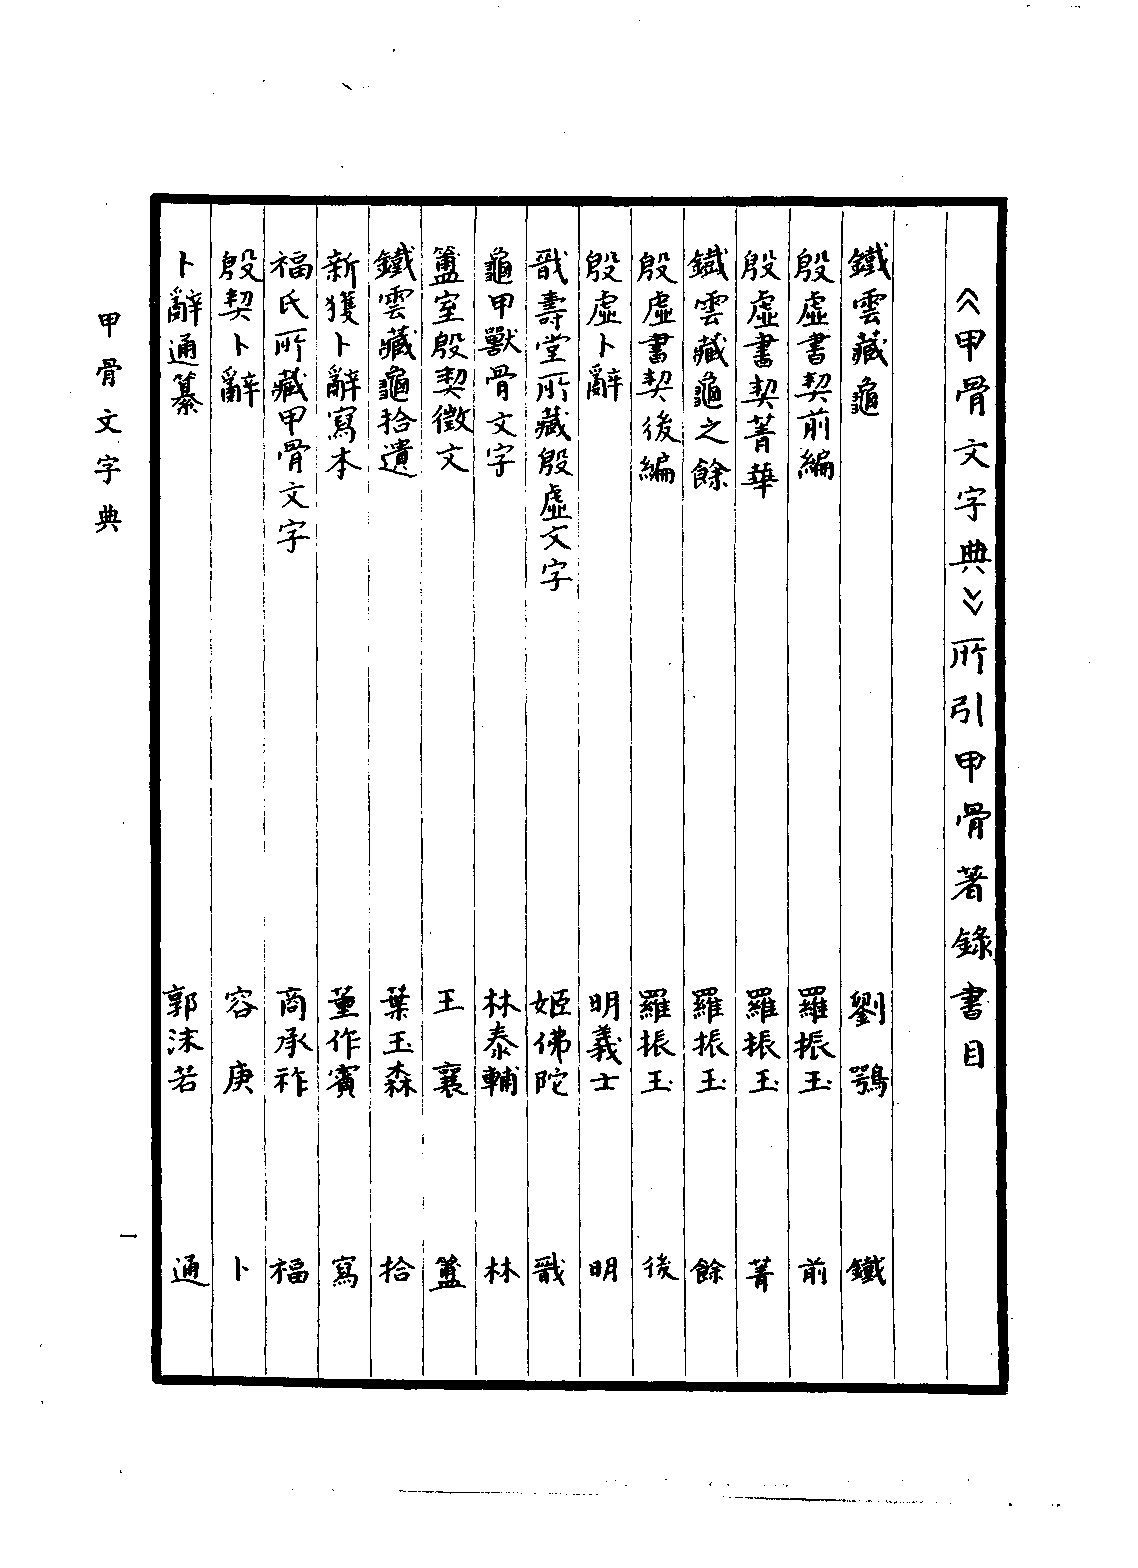 《甲骨文字典》所引甲骨著錄書目
鐵雲藏龜 劉鶚 鐵
殷虛書契前編 羅振玉 前
殷虛書契菁華 羅振玉 菁
鐵雲藏龜之餘 羅振玉 餘
殷虛書契後編 羅振玉 後
殷虛卜辭 明義士 明
戩壽堂所藏殷虛文字 姬佛陀 戩
龜甲獸骨文字 林泰輔 林
簠室殷契徵文 王襄 簠
鐵雲藏龜拾遺 葉玉森 拾
新獲卜辭寫本 董作賓 寫
福氏所藏甲骨文字 商承祚 福
殷契卜辭 容庚 卜
卜辭通纂 郭沫若 通
甲骨文字典
一